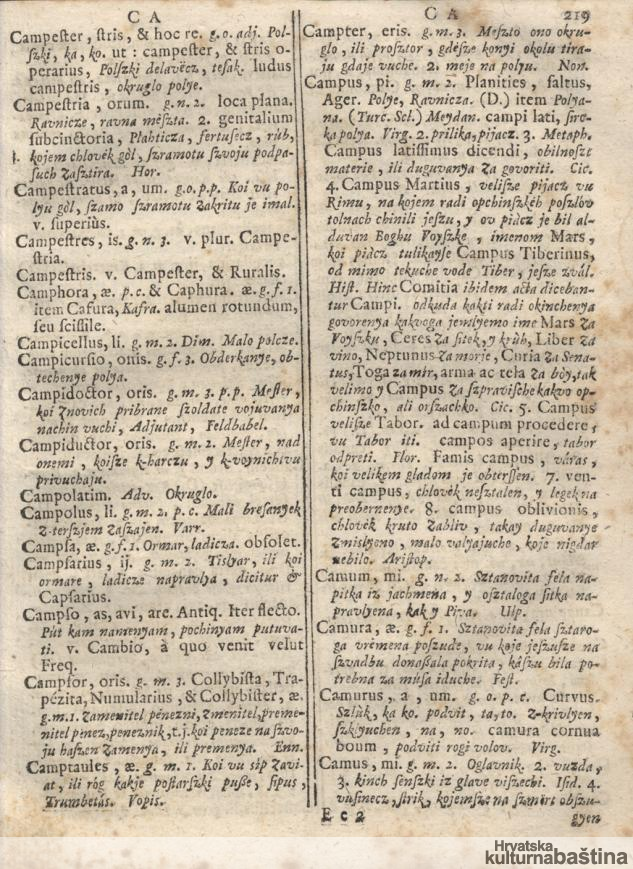 C A
Campester, stris, & hoc re. g.o. adj. Pol-
szki, ka, ko. ut : campester, & stris o-
perarius, Polszki delavècz, tesak. ludus
campestris, okruglo polye.
Campestria, orum. g.n.2. loca plana.
Ravnicze, ravna mèszta. 2. genitalium
subcinctoria, Plahticza, fertusecz, rúb,
kojem chlovèk gòl, szramotu szvoju podpa-
such zasztira. Hor.
Campestratus, a, um. g.o.p.p. Koi vu po-
lyu gòl, szamo szramotu zakritu je imal.
v. superiùs.
Campestres, is. g. n. 3. v. plur. Campe-
stria.
Campestris. v. Campester, & Ruralis.
Camphora, æ. p.c. & Caphura. æ.g.f.1.
item Cafura, Kafra. alumen rotundum,
seu scissile.
Campicellus, li. g. m. 2. Dim. Malo polcze.
Campicursio, onis. g. f. 3. Obderkanye, ob-
techenye polya.
Campidoctor, oris. g. m. 3. p. p. Mester,
koi znovich pribrane szoldate vojuvanya
nachin vuchi, Adjutant, Feldbabel.
Campiductor, oris. g. m. 2. Mester, nad
onemi, koisze k-harczu, y k-voynichtvu
privuchaju.
Campolatim. Adv. Okruglo.
Campolus, li. g. m. 2. p. c. Mali bresanyek
z-terszjem zaszajen. Varr.
Campsa, æ. g. f. 1. Ormar, ladicza. obsolet.
Campsarius, ij. g. m. 2. Tislyar, ili koi
ormare, ladicze napravlya, dicitur &
Capsarius.
Campso, as, avi, are. Antiq. Iter flecto.
Pút kam namenyam, pochinyam putuva-
ti. v. Cambio, à quo venit velut
Freq.
Campsor, oris. g. m. 3. Collybista, Tra-
pézita, Numularius, & Collybister, æ.
g.m.1. Zamenitel pènezni, zmenitel, preme-
nitel pènez, peneznik, t.j. koi peneze na szvo-
ju haszen zamenya, ili premenya. Enn.
Camptaules, æ. g. m. 1. Koi vu sip zavi-
at, ili róg kakje postarszki puße, sipus,
Trumbetás. Vopis.
C A 219
Campter, eris. g. m. 3. Meszto ono okru-
glo, ili prosztor, gdèsze konyi okolu tira-
ju gdaje vuche. 2. meje na polyu. Non.
Campus, pi. g. m. 2. Planities, saltus,
Ager. Polye, Ravnicza. (D.) item Polya-
na. (Turc. Scl.) Meydan. campi lati, siro-
ka polya. Virg. 2. prilika, pijacz. 3. Metaph.
Campus latissimus dicendi, obilnoszt
materie, ili duguvanya za govoriti. Cic.
4. Campus Martius, velisze pijacz vu
Rimu, na kojem radi opchinszkèh poszlov
tolnach chinili jeszu, y ov piacz je bil al-
duvan Boghu Voyszke, imenom Mars,
koi piàcz tulikayse Campus Tiberinus,
od mimo tekuche vode Tiber, jesze zvál.
Hist. Hinc Comitia ibidem acta diceban-
tur Campi. odkuda kakti radi okinchenya
govorenya kakvoga jemlyemo ime Mars za
Voyszku, Ceres za sitek, y krùh, Liber za
vino, Neptunus za morje, Curia za Sena-
tus, Toga za mir, arma ac tela za bòy, tak
velimo y Campus za szpravische kakvo op-
chinszko, ali orszachko. Cic. 5. Campus
velisze Tabor. ad campum procedere,
vu Tabor iti. campos aperire, tabor
odpreti. Flor. Famis campus, váras,
koi velikem gladom je obterssen. 7. ven-
ti campus, chlovèk nesztalen, y legek na
preobernenye. 8. campus oblivionis,
chlovèk kruto zabliv, takay duguvanye
zmislyeno, malo valyajuche, koje nigdar
nebilo. Aristop.
Camum, mi. g. n. 2. Sztanovita fela na-
pitka iz jachmena, y osztaloga sitka na-
pravlyena, kak y Piva. Ulp.
Camura, æ. g. f. 1. Sztanovita fela sztaro-
ga vrèmena poszude, vu koje jeszusze na
szvadbu donaßala pokrita, kaszu bila po-
trebna za mùsa iduche. Fest.
Camurus, a, um. g. o. p. c. Curvus.
Szlùk, ka ko. podvit, ta, to. z-krivlyen,
szklyuchen, na, no. camura cornua
boum, podviti rogi volov. Virg.
Camus, mi. g. m. 2. Oglavnik. 2. vuzda,
3. kinch senszki iz glave viszechi. Isid. 4.
vusinecz, strik, kojemsze na szmèrt obszu-
E e 2 gyen
Hrvatska
kulturnabaština